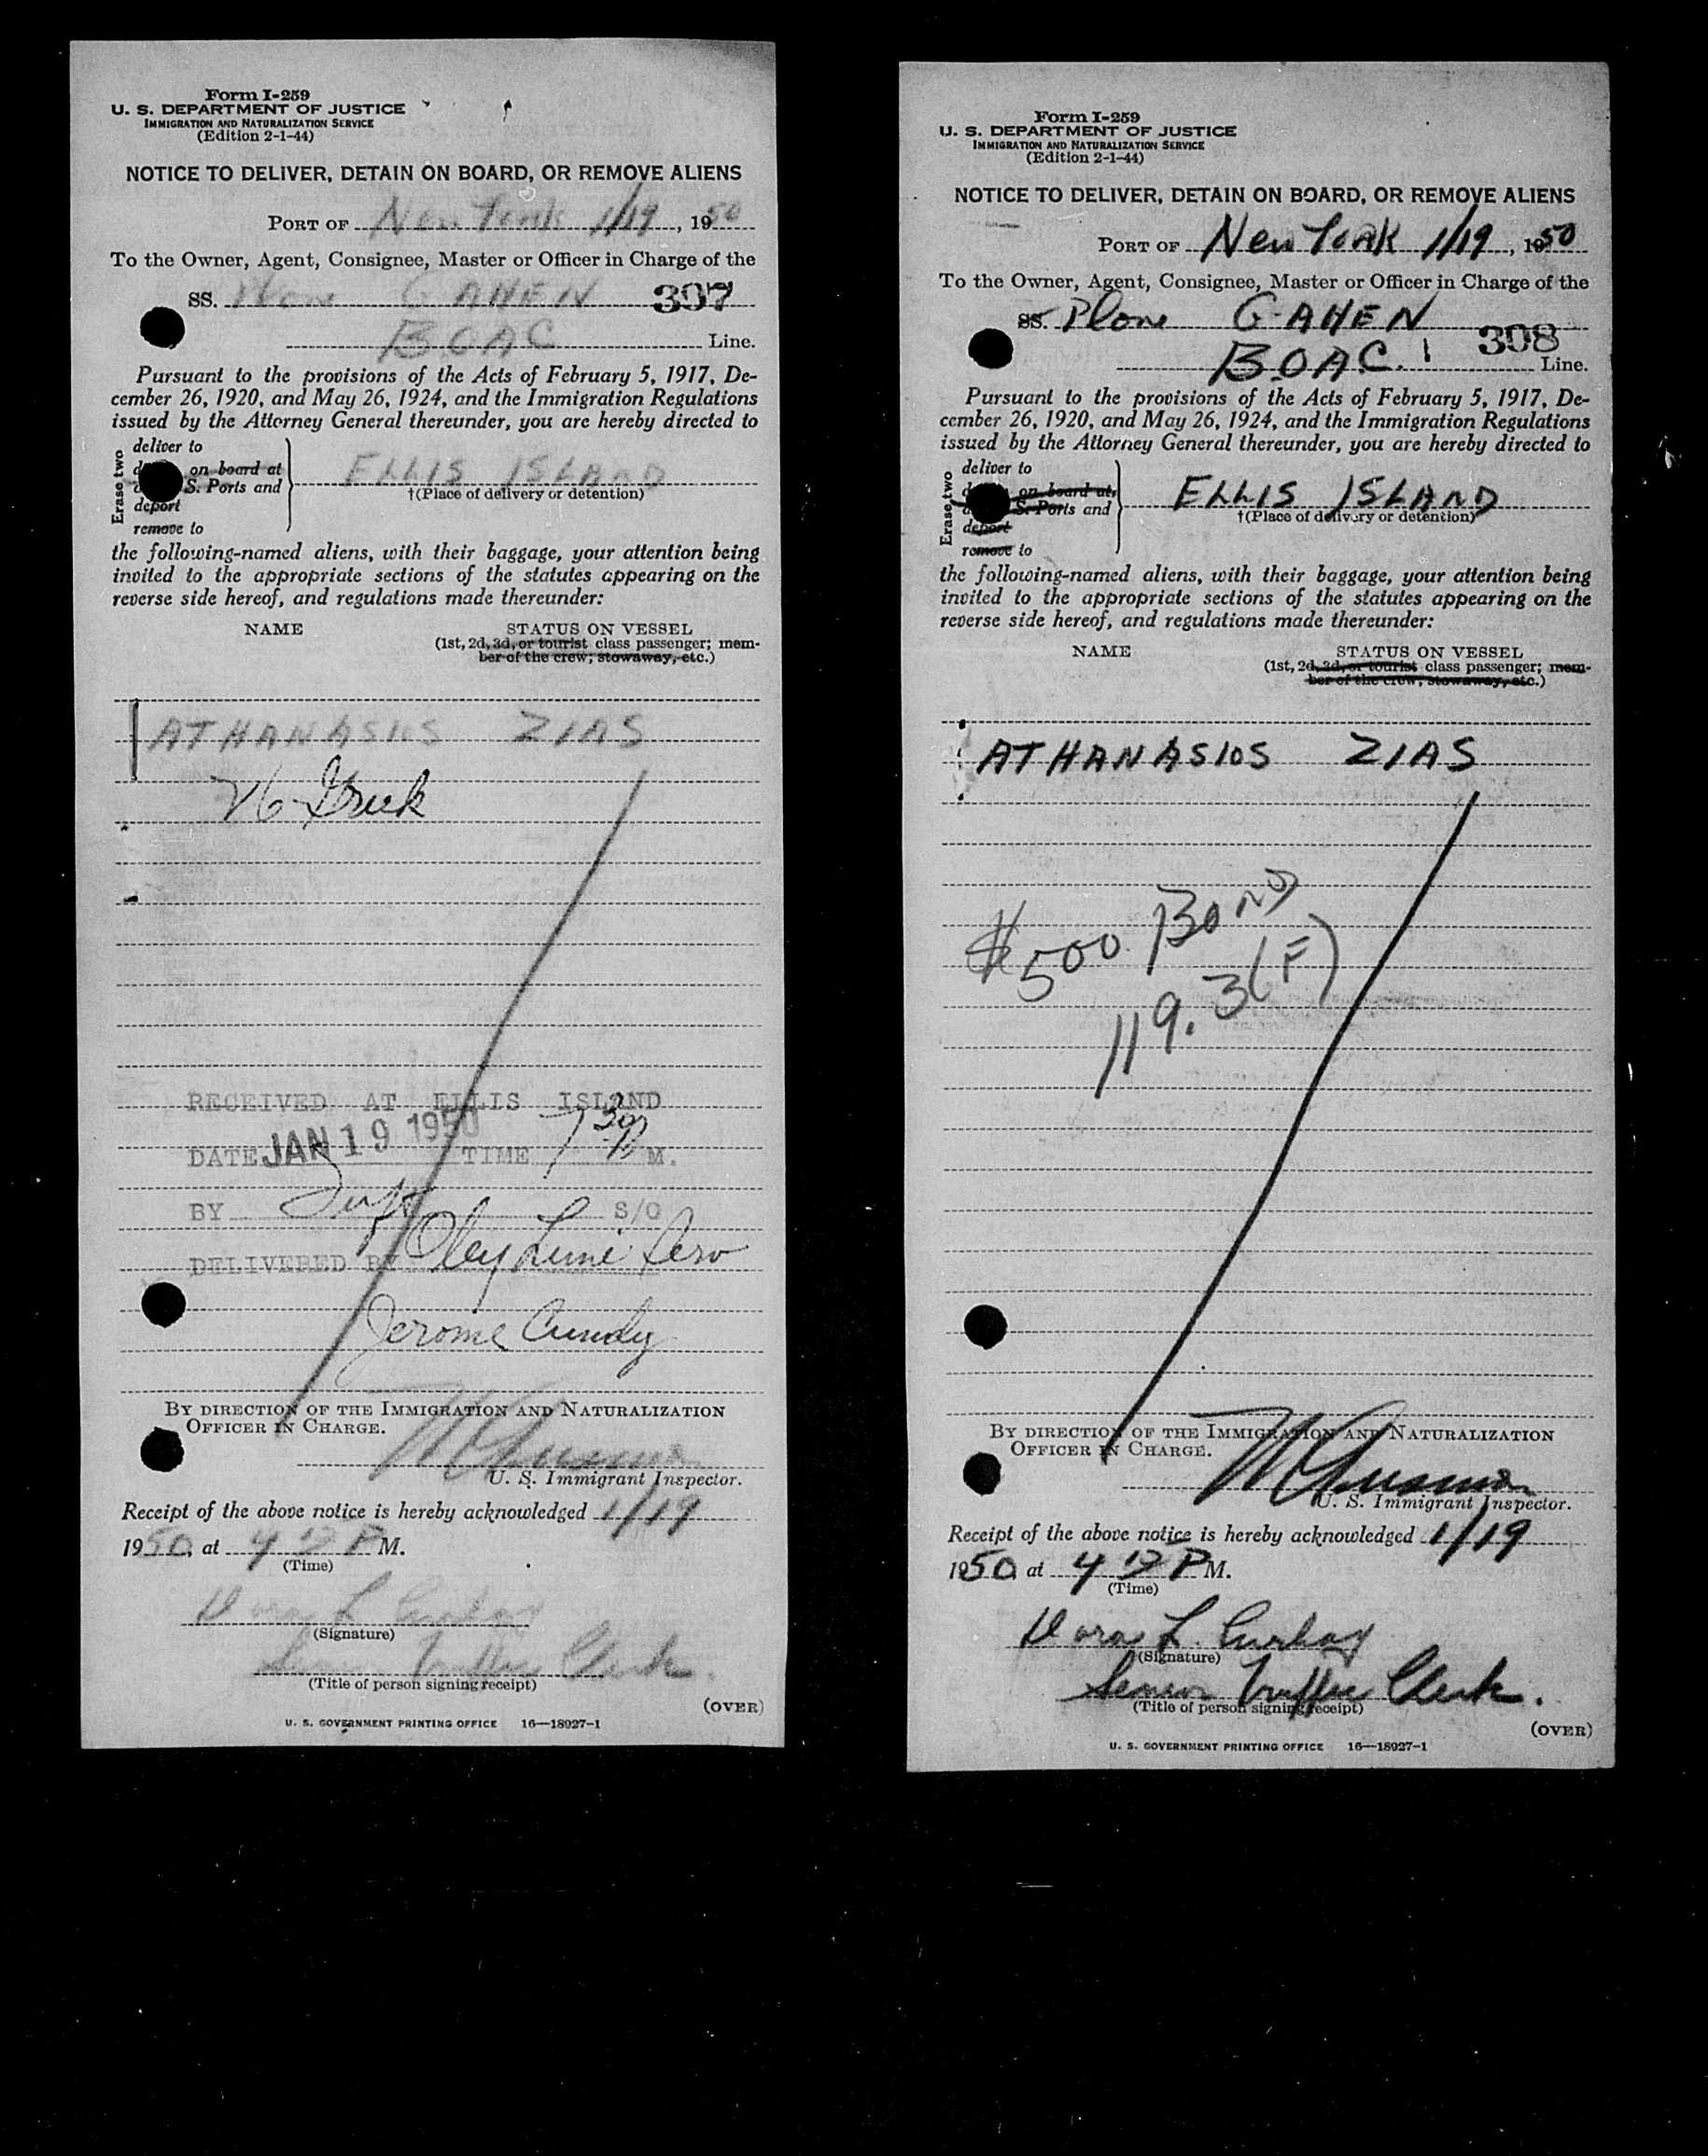 Form I-259
U. S. DEPARTMENT OF JUSTICE
IMMIGRATION AND NATURALIZATION SERVICE
(Edition 2-1-44)
NOTICE TO DELIVER, DETAIN ON BOARD, OR REMOVE ALIENS
PORT OF New York 1/19, 1950
To the Owner, Agent, Consignee, Master or Officer in Charge of the
SS. Plane G AHEN 307
BOAC Line.
Pursuant to the provisions of the Acts of February 5, 1917, De-
cember 26, 1920, and May 26, 1924, and the Immigration Regulations
issued by the Attorney General thereunder, you are hereby directed to
Erase two
deliver to
on board at
S. Ports and
deport
remove to
ELLIS ISLAND
†(Place of delivery or detention)
the following-named aliens, with their baggage, your attention being
invited to the appropriate sections of the statutes appearing on the
reverse side hereof, and regulations made thereunder:
NAME STATUS ON VESSEL
(1st, 2d, 3d, or tourist class passenger; mem-
ber of the crew; stowaway, etc.)
ATHANASIOS ZIAS
Greek
RECEIVED AT ELLIS ISLAND
DATE JAN 19 1950 TIME 7 30 P M.
BY S/O
DELIVERED BY
Jerome Cundy
BY DIRECTION OF THE IMMIGRATION AND NATURALIZATION
OFFICER IN CHARGE.
U. S. Immigrant Inspector.
Receipt of the above notice is hereby acknowledged 1/19
1950, at 4 P M.
(Time)
Dora L.
(Signature)
Senior Traffic Clerk.
(Title of person signing receipt)
(OVER)
U. S. GOVERNMENT PRINTING OFFICE 16—18927-1
Form I-259
U. S. DEPARTMENT OF JUSTICE
IMMIGRATION AND NATURALIZATION SERVICE
(Edition 2-1-44)
NOTICE TO DELIVER, DETAIN ON BOARD, OR REMOVE ALIENS
PORT OF New York 1/19, 1950
To the Owner, Agent, Consignee, Master or Officer in Charge of the
SS. Plane G-AHEN 308
BOAC. Line.
Pursuant to the provisions of the Acts of February 5, 1917, De-
cember 26, 1920, and May 26, 1924, and the Immigration Regulations
issued by the Attorney General thereunder, you are hereby directed to
Erase two
deliver to
on board at
S. Ports and
deport
remove to
ELLIS ISLAND
†(Place of delivery or detention)
the following-named aliens, with their baggage, your attention being
invited to the appropriate sections of the statutes appearing on the
reverse side hereof, and regulations made thereunder:
NAME STATUS ON VESSEL
(1st, 2d, 3d, or tourist class passenger; mem-
ber of the crew; stowaway, etc.)
ATHANASIOS ZIAS
$500 BOND
119.3(F)
BY DIRECTION OF THE IMMIGRATION AND NATURALIZATION
OFFICER IN CHARGE.
U. S. Immigrant Inspector.
Receipt of the above notice is hereby acknowledged 1/19
1950, at 4 P M.
(Time)
Dora L.
(Signature)
Senior Traffic Clerk.
(Title of person signing receipt)
(OVER)
U. S. GOVERNMENT PRINTING OFFICE 16—18927-1